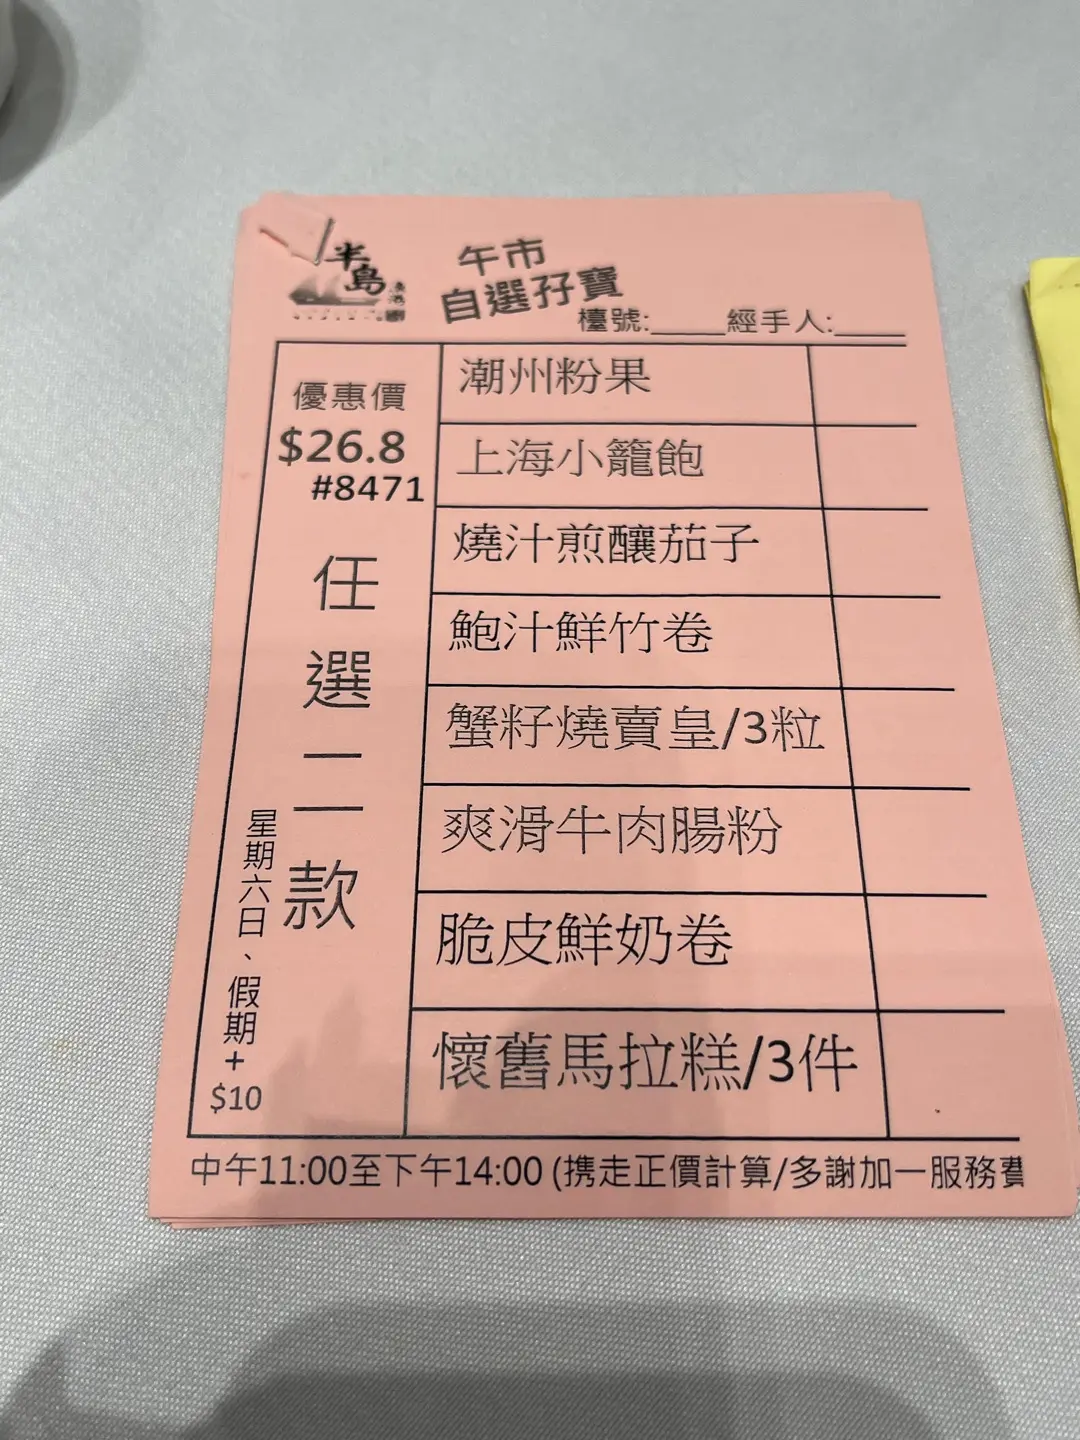 半島
午市
自選孖寶
檯號:_____經手人:_____
優惠價
$26.8
#8471
任選二款
星期六日、假期+$10
潮州粉果
上海小籠飽
燒汁煎釀茄子
鮑汁鮮竹卷
蟹籽燒賣皇/3粒
爽滑牛肉腸粉
脆皮鮮奶卷
懷舊馬拉糕/3件
中午11:00至下午14:00 (携走正價計算/多謝加一服務費